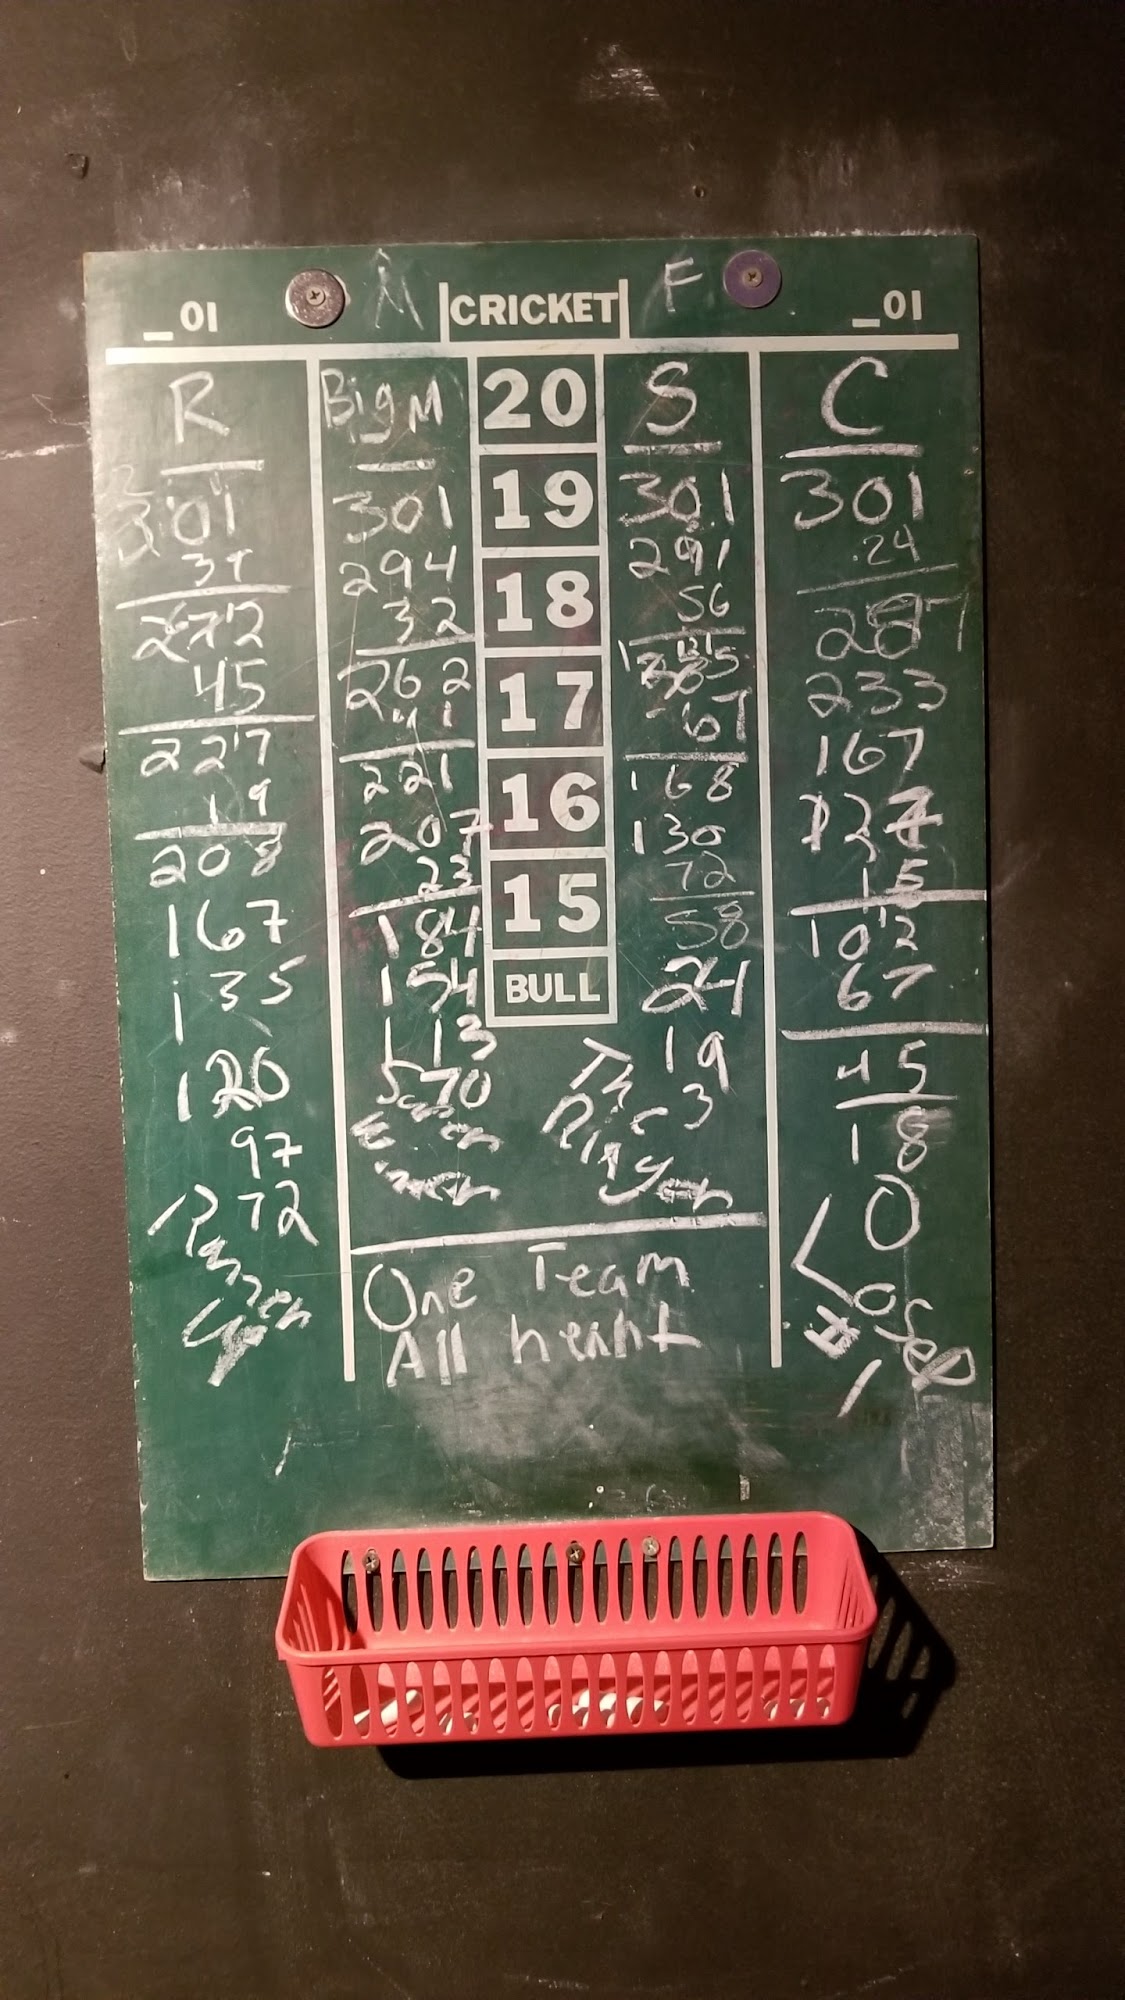 _01
M
CRICKET
F
_01
R
301
272
45
227
19
208
167
135
120
97
72
Big M
301
294
32
262
41
221
207
23
184
154
113
70
20
19
18
17
16
15
BULL
S
301
291
56
67
168
130
72
58
24
19
3
The
C
301
24
233
167
15
102
67
45
18
0
Loser
#1
One Team
All heart